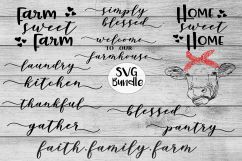 Farm
sweet
Farm
simply
blessed
welcome
TO OUR
farmhouse
Home
sweet
Home
laundry
kitchen
SVG
Bundle
thankful
gather
blessed
pantry
faith family farm